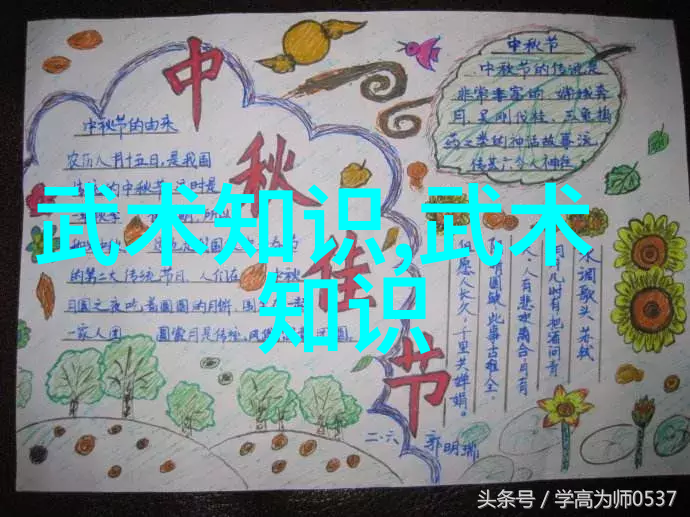 中秋佳节
中秋节的由来
农历八月十五日,是我国
的中秋节
的第二大传统节日,人们在 中秋
月圆之夜吃着圆圆的月饼,
一家人团 圆赏月是传统风俗
中秋节
中秋节的传说是
非常丰富的,嫦娥奔
月,吴刚伐桂,玉兔捣
药之类的神话故事流
传甚广
水调歌头 苏轼
几时有把酒问青
人有悲欢离合月有
阴晴圆缺,此事古难全。
但愿人长久,千里共婵娟。
二·六 郭明瑞
武术知识,武术
知识
头条号/学高为师0537